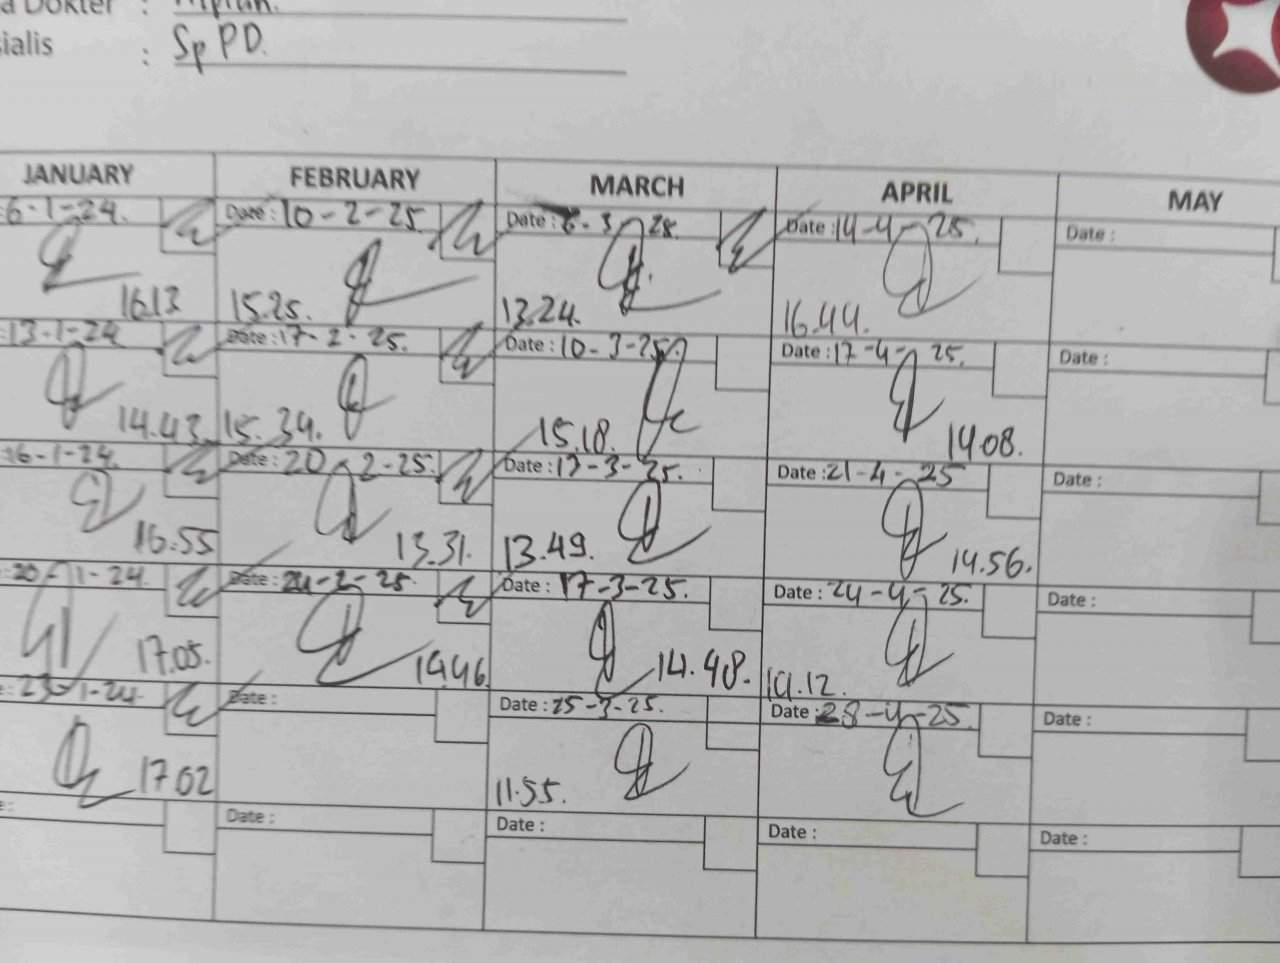 a Dokter :
ialis : Sp PD.
JANUARY FEBRUARY MARCH APRIL MAY
: 6-1-24. Date : 10-2-25 Date : 6-3 25. Date : 14-4-25. Date :
16.13 15.25. 13.24. 16.44.
: 13-1-24 Date : 17-2-25. Date : 10-3-25 Date : 17-4-25. Date :
14.43. 15.34. 15.18. 14.08.
: 16-1-24. Date : 20 2-25. Date : 13-3-25. Date : 21-4-25 Date :
16.55 13.31. 13.49. 14.56.
: 20-1-24. Date : 24-2-25. Date : 17-3-25. Date : 24-4-25. Date :
17.05. 14.46. 14.48. 14.12.
e : 23-1-24. Date : Date : 25-3-25. Date : 28-4-25. Date :
17.02 11.55.
e : Date : Date : Date : Date :